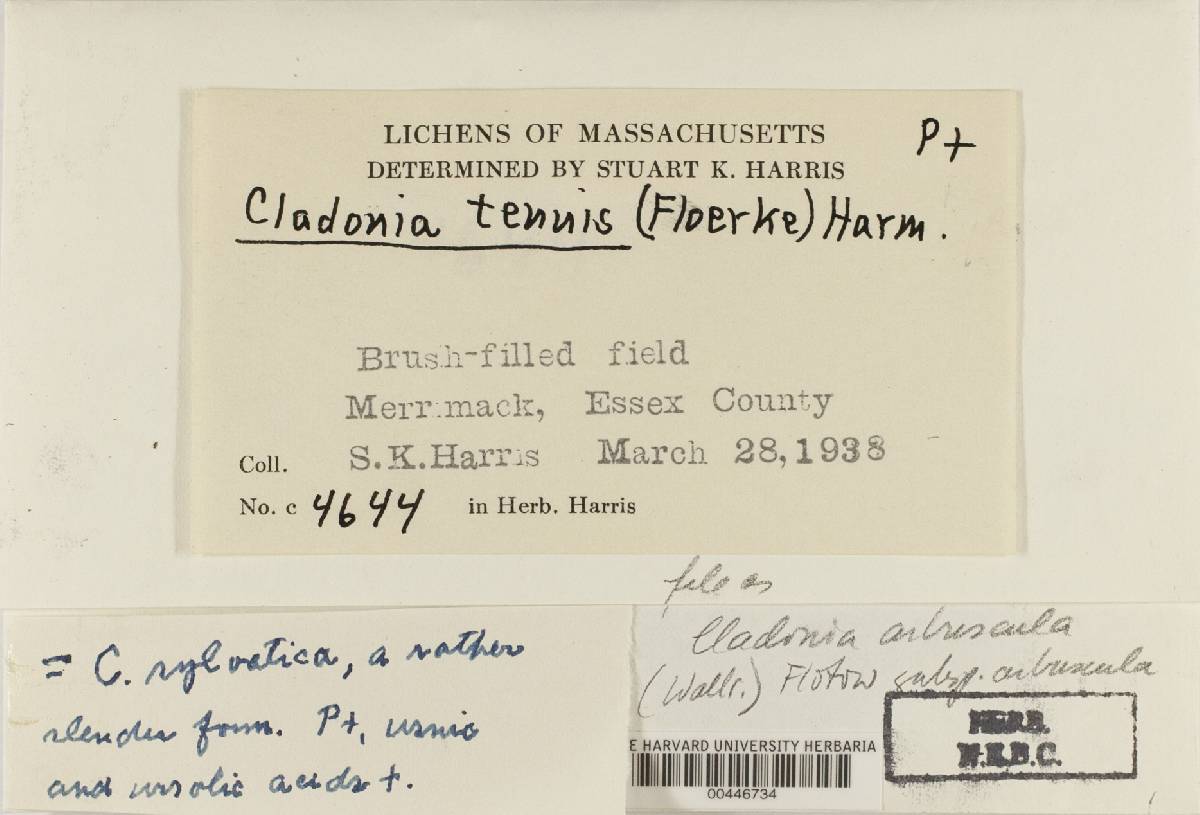 LICHENS OF MASSACHUSETTS
P+
DETERMINED BY STUART K. HARRIS
Cladonia tenuis (Floerke) Harm.
Brush-filled field
Merrimack, Essex County
Coll. S.K.Harris March 28, 1938
No. c 4644 in Herb. Harris
= C. sylvatica, a rather
slender form. P+, usnic
and ursolic acids +.
file as
Cladonia arbuscula
(Wallr.) Flotow subsp. arbuscula
HERB.
N.E.B.C.
E HARVARD UNIVERSITY HERBARIA
00446734